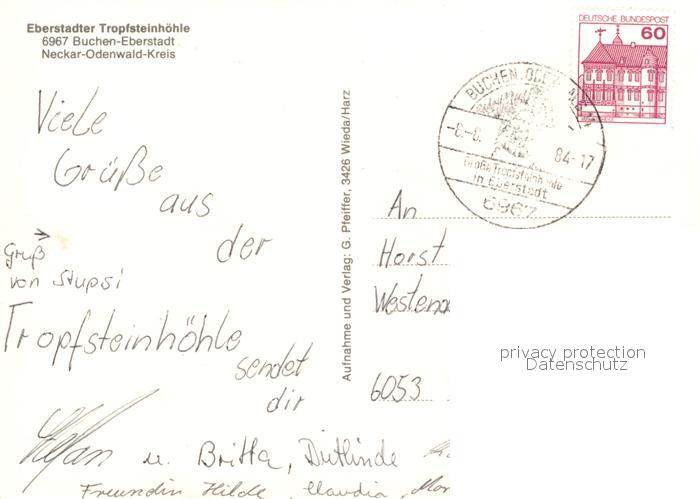 Eberstadter Tropfsteinhöhle
6967 Buchen-Eberstadt
Neckar-Odenwald-Kreis
Viele
Grüße
aus
der
Gruß
von Stupsi
Tropfsteinhöhle
sendet
dir
Stefan u. Britta, Dietlinde
Freundin Hilde, Claudia,
Aufnahme und Verlag: G. Pfeiffer, 3426 Wieda/Harz
DEUTSCHE BUNDESPOST
60
BUCHEN, ODENWALD
-6.-8. 84-17
Große Tropfsteinhöhle
in Eberstadt
6967
An
Horst
6053
privacy protection
Datenschutz